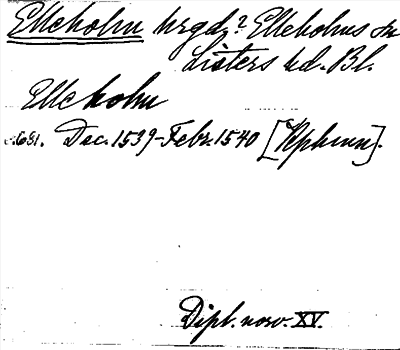 Ellekohn hrgd? Ellekohns sn
Listers hd. Bl.
Ellekohn
s.631. Dec. 1539-Febr. 1540 [Kphmn].
Dipl. norv. XV.